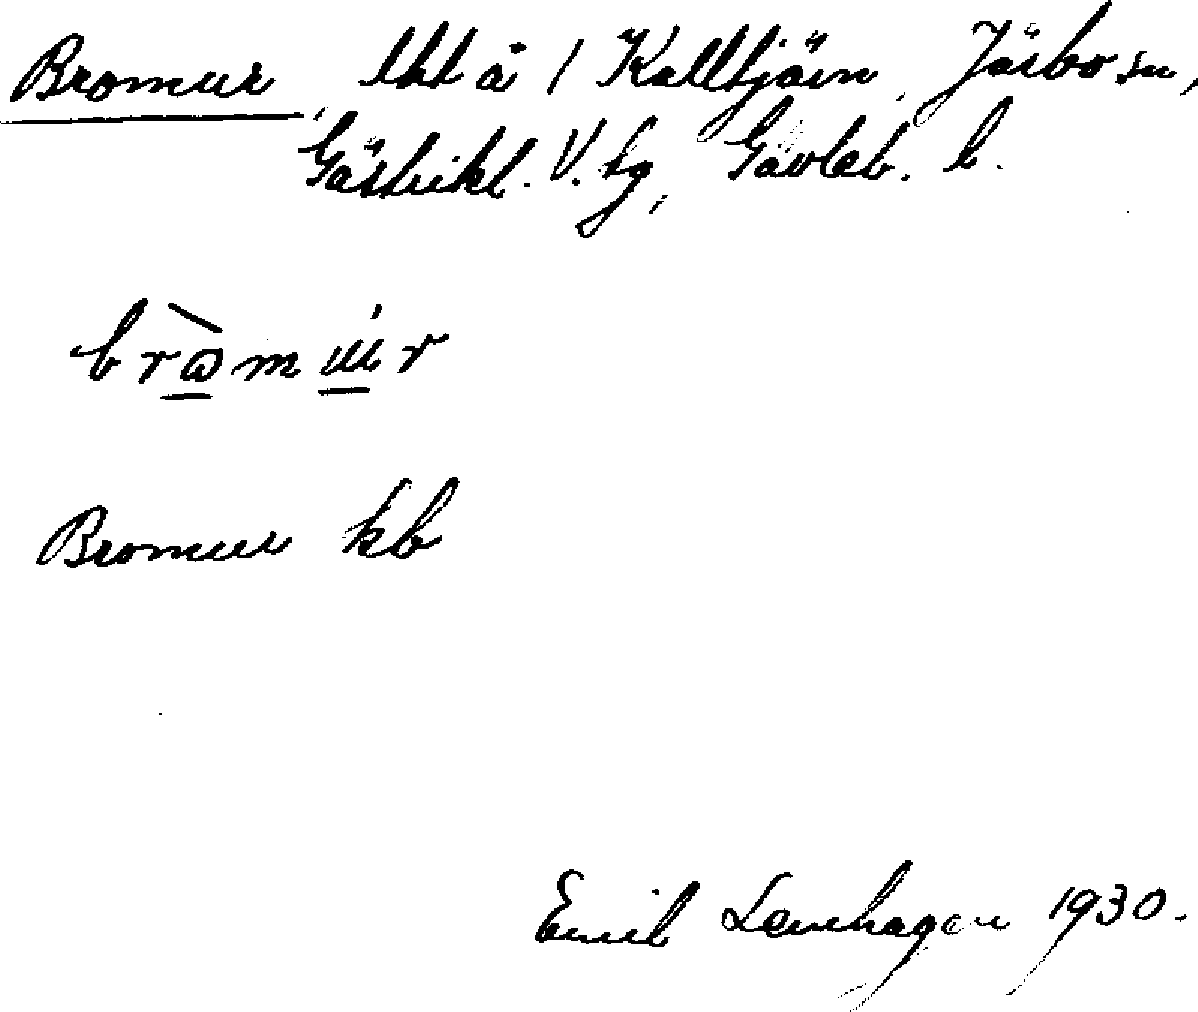 Bromur, lht å 1 Kalltjärn, Järbo sn,
Gästrikl. V. tg, Gävleb. l.
Bromur kb
Emil Lenhagen 1930.